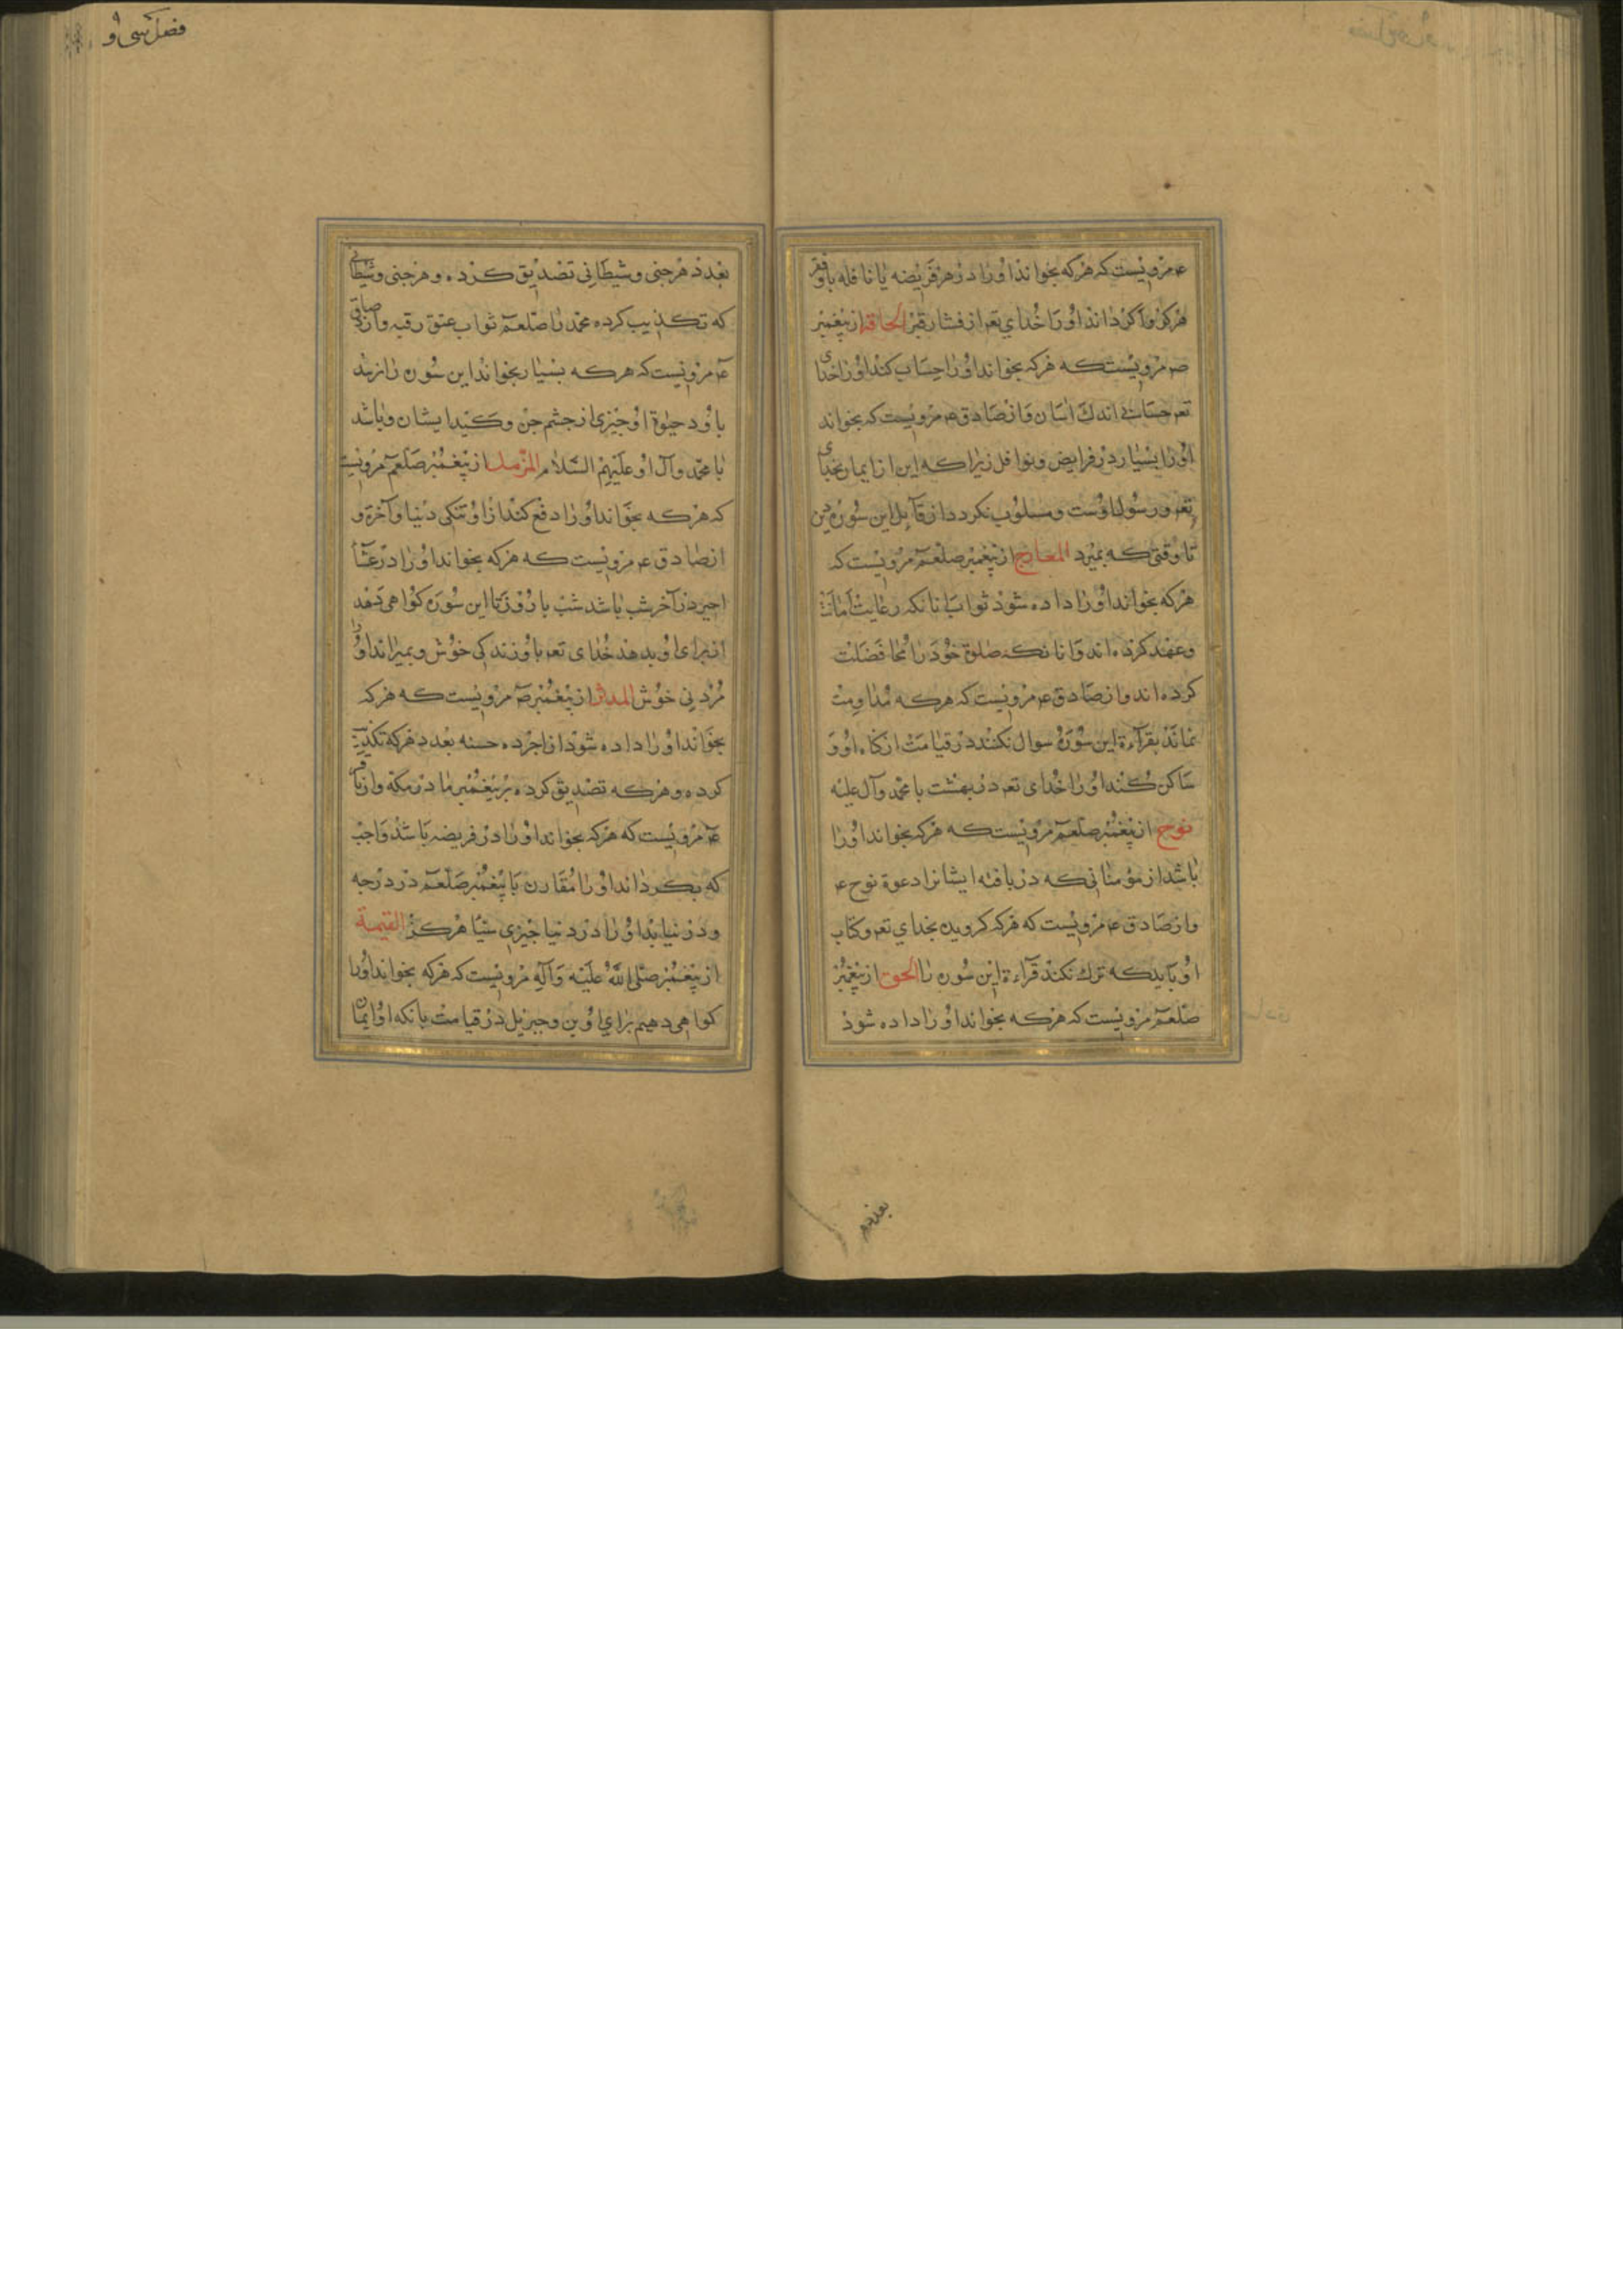 فضل سی و
عم مرویست که هرکه بخواند اورا در هر فریضه یا نافله باوفقر
هرکز واکرداند اورا خدای تعم از فشار قبر الحاقة از پیغمبر
صم مرویست که هرکه بخواند اورا حساب کند اورا خدای
تعم حسابی اندک اسان و از صادق عم مرویست که بخواند
اورا بسیار در فرایض ونوافل زیرا که این از ایمان بخدای
تعم ورسول اوست ومسلوب نکردد از قآیل این سوره دین
تا وقتی که بمیرد المعارج از پیغمبر صلعم مرویست که
هرکه بخواند اورا داده شود ثواب انانکه رعایت امانت
وعهد کرده اند وانانکه صلوة خود را محافضلت
کرده اند واز صادق عم مرویست که هرکه مداومت
نماند بقرآءة این سوره سوال نکنند در قیامت از کناه او و
ساکن کند اورا خدای تعم در بهشت با محمد وآل علیه
نوح از پیغمبر صلعم مرویست که هرکه بخواند اورا
باشد از مؤمنانی که دریافته ایشانرا دعوة نوح عم
واز صادق عم مرویست که هرکه کرویده بخدای تعم وکتاب
او باید که ترك نکند قرآءة این سوره را الجن از پیغمبر
صلعم مرویست که هرکه بخواند اورا داده شود
بعدد هر
بعدد هر جنی وشیطانی تصدیق کرده و هر جنی وشیطانی
که تکذیب کرده محمد را صلعم ثواب عتق رقبه واز صادق
عم مرویست که هرکه بسیار بخواند این سوره را نرسد
باو در حیوة او چیزی از چشم جن وکید ایشان وباشد
با محمد وآل او علیهم السلام المزمل از پیغمبر صلعم مرویست
که هرکه بخواند اورا دفع کند از او تنکی دنیا وآخرة و
از صادق عم مرویست که هرکه بخواند اورا در عشآء
اخیر در آخر شب باشد شب با روز تا این سوره کواهی دهد
از برای او بدهد خدای تعم باو زندکی خوش وبمیراند اورا
مردنی خوش المدثر از پیغمبر صم مرویست که هرکه
بخواند اورا داده شود از اجر ده حسنه بعدد هرکه تکذیب
کرده وهرکه تصدیق کرده بر پیغمبر ما در مکه واز باقر
عم مرویست که هرکه بخواند اورا در فریضه باشد واجب
که بکرداند اورا مقارن با پیغمبر صلعم در درجه
ودر نیابد اورا در دنیا چیزی شیئا هرکز القیمة
از پیغمبر صلی الله علیه وآله مرویست که هرکه بخواند اورا
کواهی دهیم برای او من وجبرئیل در قیامت بانکه او ایمان